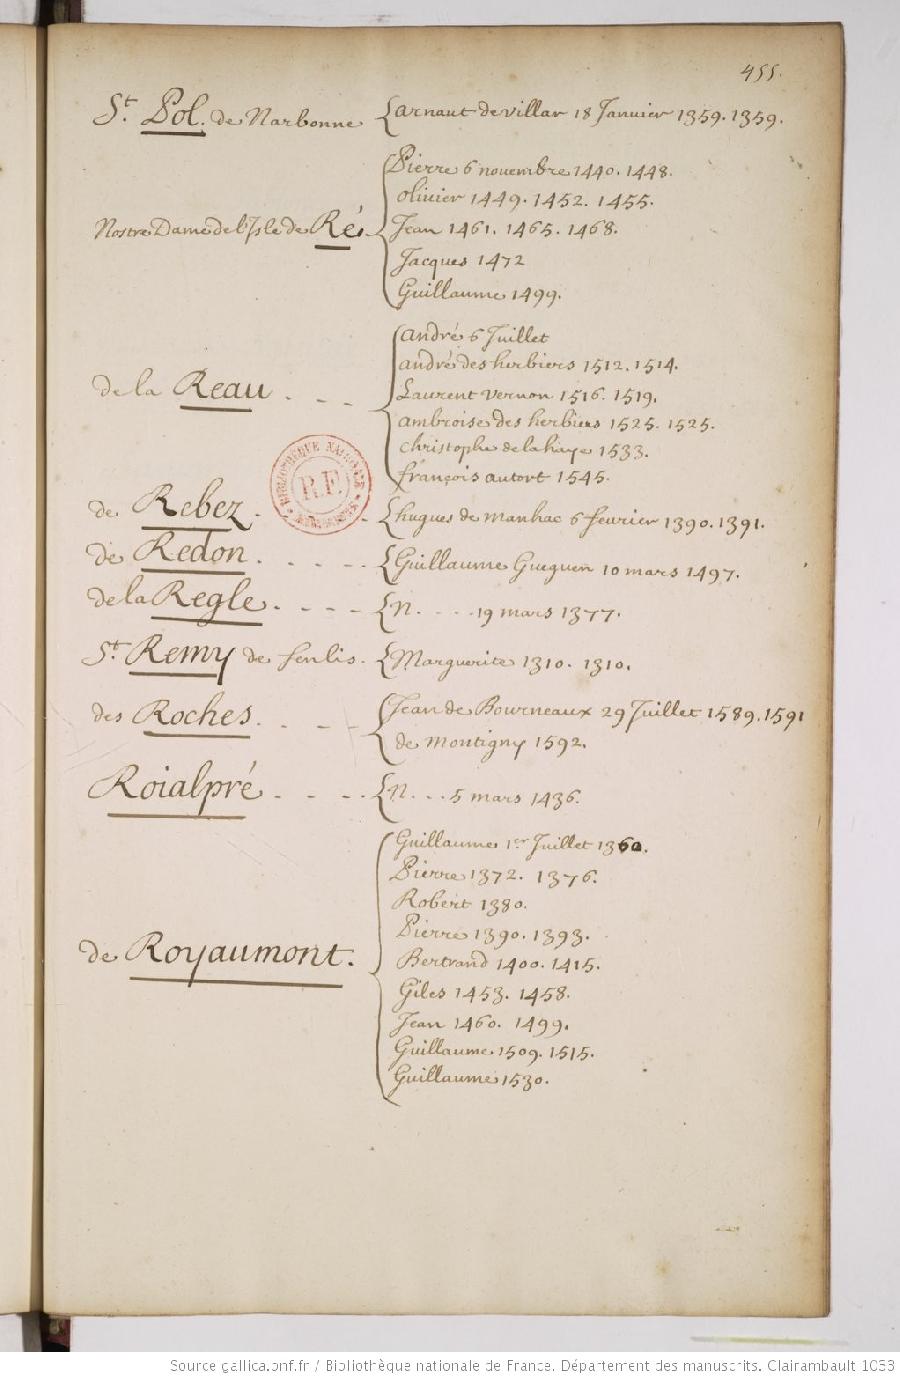 455.
St. Pol. de Narbonne { arnaut de villar 18 Janvier 1359. 1359.
Pierre 6 novembre 1440. 1448.
olivier 1449. 1452. 1455.
Nostre Dame de l'Isle de Ré. { Jean 1461. 1465. 1468.
Jacques 1472
Guillaume 1499.
andré 6 Juillet
andré des herbiers 1512. 1514.
de la Reau . - - { Laurent vernon 1516. 1519.
ambroise des herbiers 1525. 1525.
christophe de la haye 1533.
françois autort 1545.
BIBLIOTHÈQUE NATIONALE
R.F.
MANUSCRITS
de Rebez . - { hugues de manhac 6 fevrier 1390. 1391.
de Redon . - - - - { Guillaume Gueguen 10 mars 1497.
de la Regle . - - - - { N. . . . . 19 mars 1377.
St. Remy de senlis . { Marguerite 1310. 1310.
des Roches . - - - { Jean de Bourneaux 29 Juillet 1589. 1591
de Montigny 1592.
Roialpré . - - - { N. . . . 5 mars 1436.
Guillaume 1er Juillet 1360.
Pierre 1372. 1376.
Robert 1380.
Pierre 1390. 1393.
de Royaumont . { Bertrand 1400. 1415.
Giles 1453. 1458.
Jean 1460. 1499.
Guillaume 1509. 1515.
Guillaume 1530.
Source gallica.bnf.fr / Bibliothèque nationale de France. Département des manuscrits. Clairambault 1033